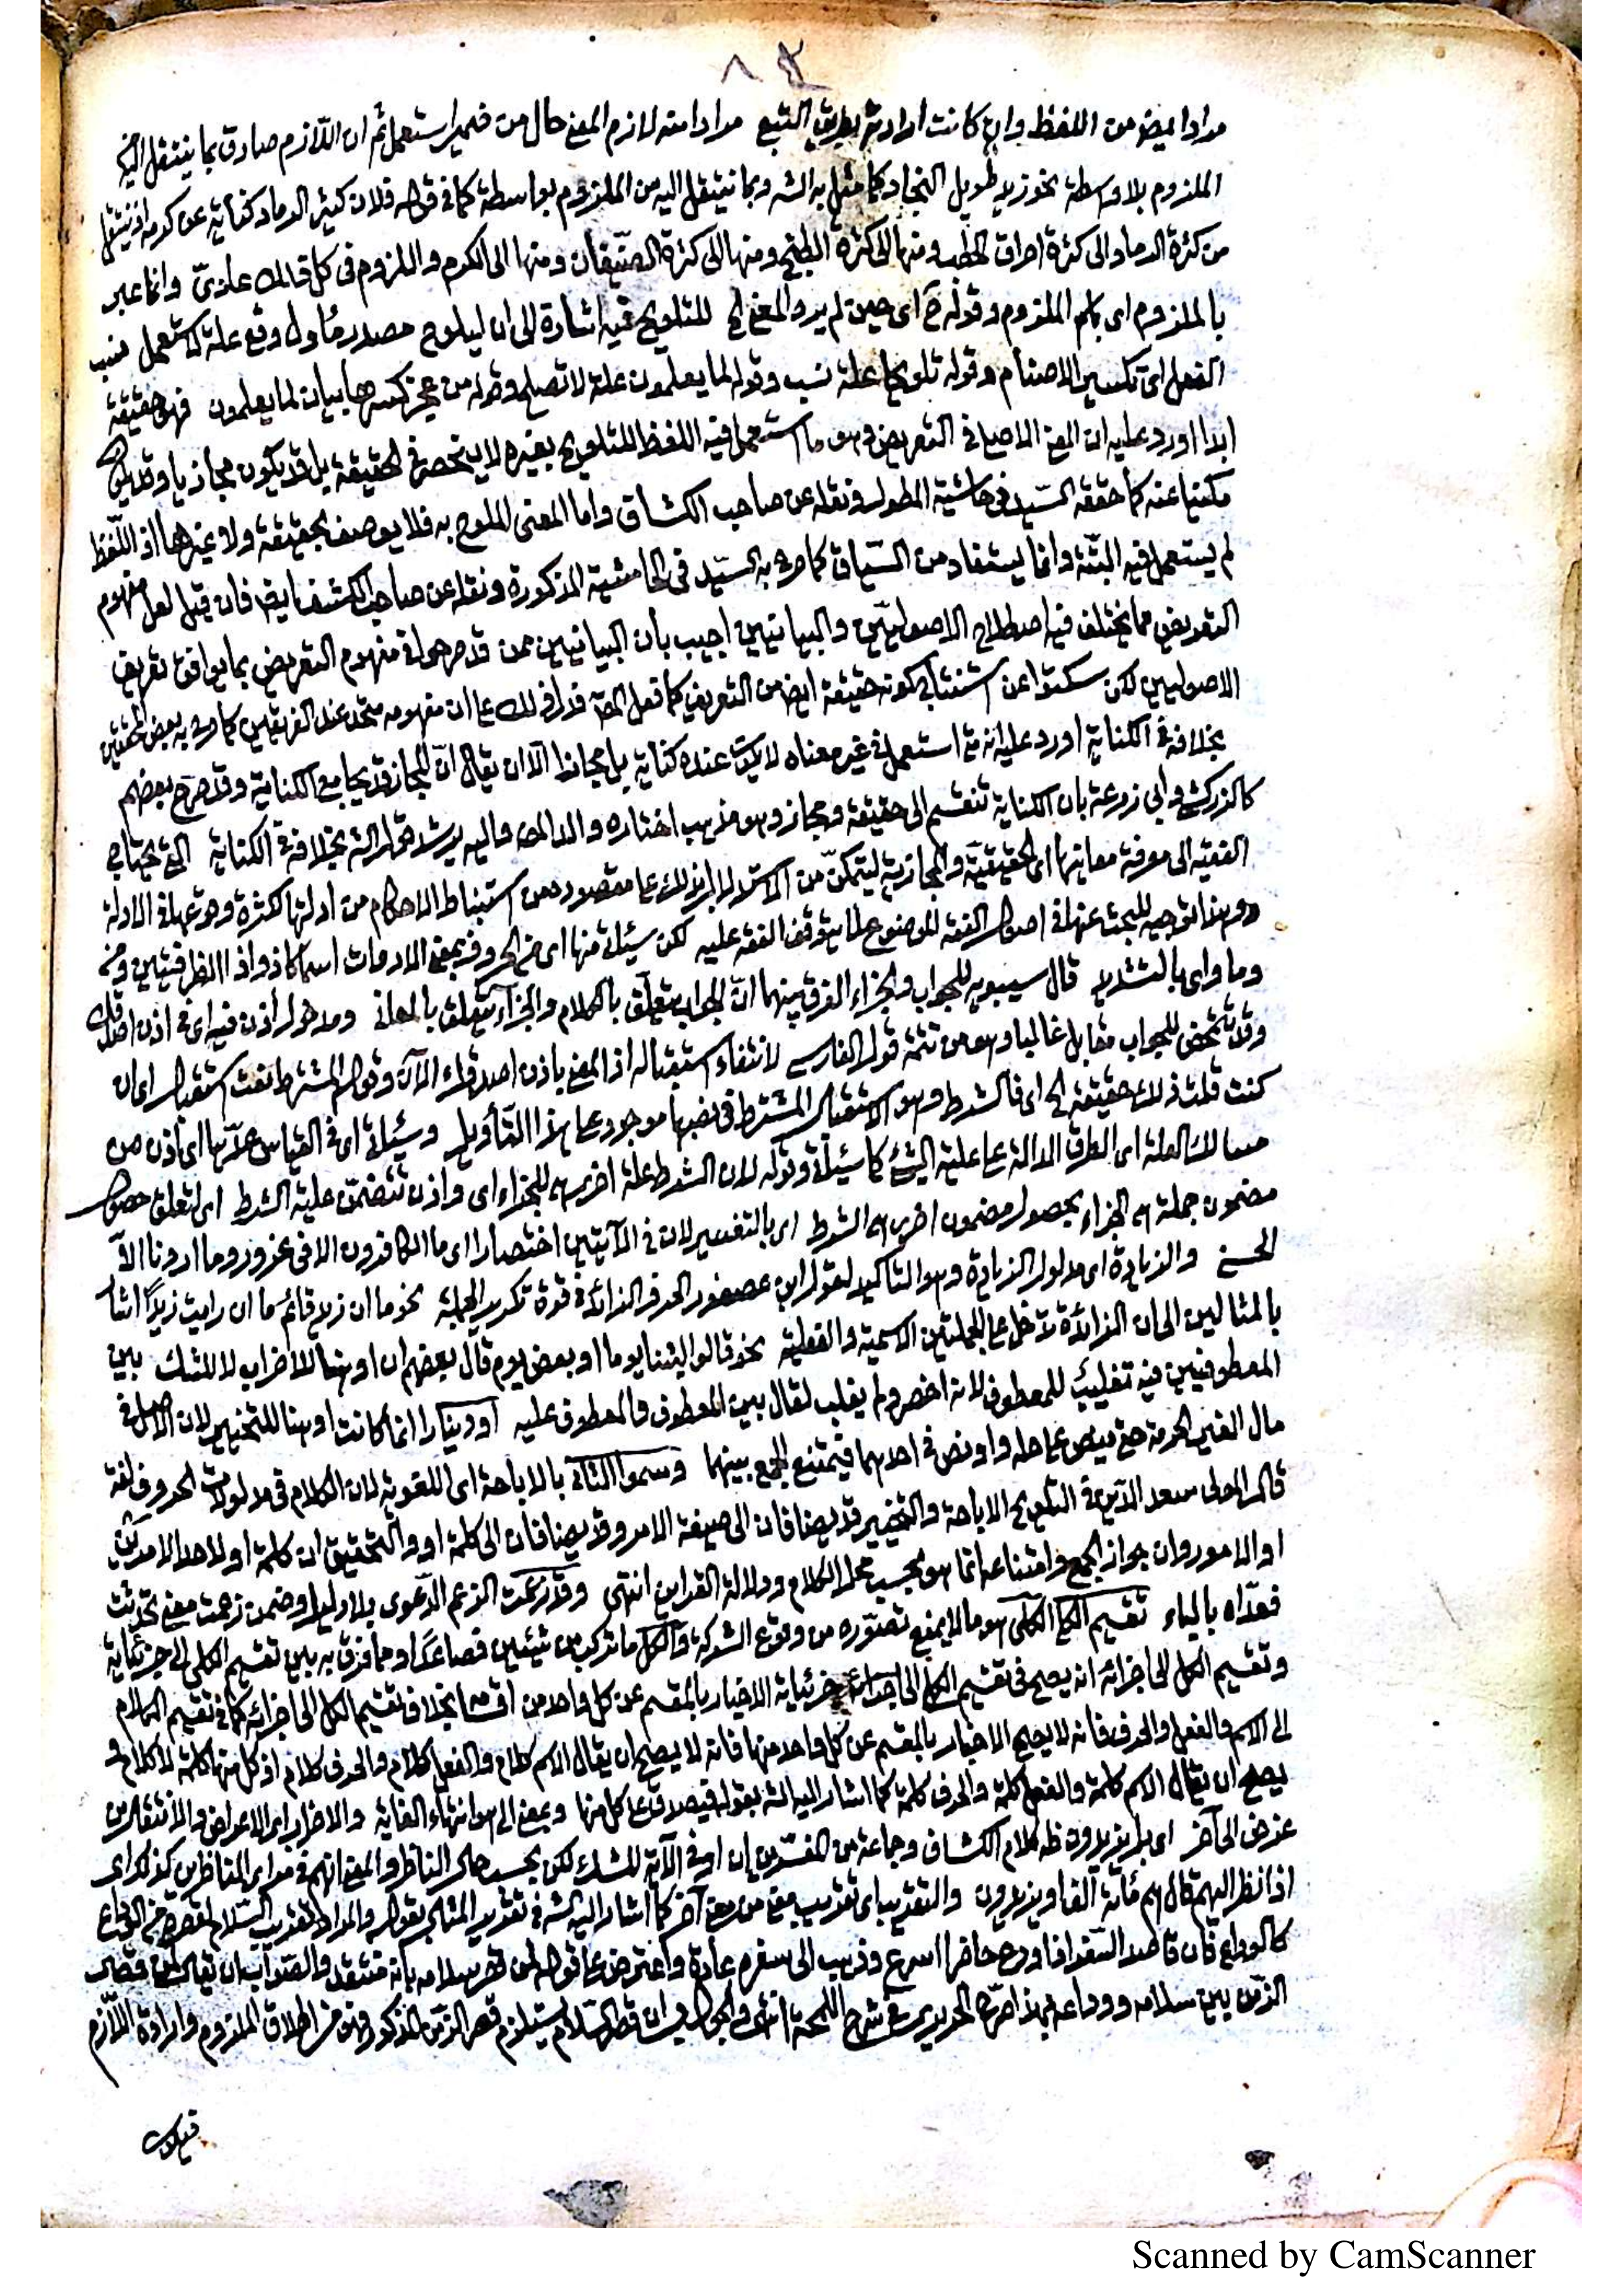 ٨٢
مرادا ايضا من اللفظ وان كانت ارادته بطريق التبع مرادا منه لازم المعنى حال من ضمير استعمل ثم ان اللازم صادق بما ينتقل اليه
الملزوم بلا واسطة نحو زيد طويل النجاد كما مثل به الشه وبما ينتقل اليه من الملزوم بواسطة كما في قوله فلان كثير الرماد كناية عن كرمه اذ ينتقل
من كثرة الرماد الى كثرة احراق الحطب ومنها الى كثرة الطبخ ومنها الى كثرة الضيفان ومنها الى الكرم والملزوم في كل ذلك عادي وانما عبر
بالملزوم اى باسم الملزوم وقوله ح اى حين لم يرد المعنى الخ للتلويح فيه اشارة الى ان ليلوح مصدر مأول وقع علة لاستعمل فنسب
الفعل اى تكسير الاصنام وقوله تلويحا علة نسب وقوله لما يعلمون علة لا تصلح وقوله من عجز كسرها بيان لما يعلمون فهو حقيقة
ابدا اورد عليه ان المعنى الاصلي في التعريض وهو ما استعمل فيه اللفظ للتلويح بغيره لا ينحصر في الحقيقة بل قد يكون مجازيا وقد يكون
مكنيا عنه كما حققه السيد في حاشية المطول ونقله عن صاحب الكشاف واما المعنى الملوح به فلا يوصف بحقيقة ولا غيرها اذ اللفظ
لم يستعمل فيه البتة وانما يستفاد من السياق كما صرح به السيد في الحاشية المذكورة ونقله عن صاحب الكشف ايضا فان قيل لعل مفهوم
التعريض مما يختلف فيه اصطلاح الاصوليين والبيانيين اجيب بأن البيانيين ممن قد صرحوا في مفهوم التعريض بما يوافق تعريف
الاصوليين لكن سكتوا عن استثناء كونه حقيقة ايضا من التعريف كما فعل المص فدل ذلك على ان مفهومه متحد عند الفريقين كما صرح به بعض المحققين
بخلافه في الكناية اورد عليه انه متى استعمل في غير معناه لا يكون عنده كناية بل مجازا الا ان يقال ان المجاز قد يجامع الكناية وقد صرح بعضهم
كالزركشي وابي زرعة بان الكناية تنقسم الى حقيقة ومجاز وهو مذهب اختاره والد المص واليه يرشد قول الشه بخلافه في الكناية التي يحتاج
الفقيه الى معرفة معانيها اى الحقيقية والمجازية ليتمكن من الاستدلال بذلك على مقصوده من استنباط الاحكام من ادلتها لكثرة وقوعها في الادلة
وهذا توجيه للبحث عنها في اصول الفقه الموضوع لما يتوقف الفقه عليه لكن سيأتي منها اى من الحروف بمعنى الادوات اسما كاذ واذا الظرفيتين ومن
وما واى بالتشديد قال سيبويه للجواب والجزاء الفرق بينهما ان الجواب يتعلق بالكلام والجزاء يتعلق بالمعاني ومدخول اذن فيه اى في اذن اصدقك
وقد تتمحض للجواب مقابل غالبا وهو من تتمة قول الفارسي لانتفاء استقباله اذ المعنى باذن اصدقك الآن وقوله المشترط نعت استقبال اى ان
كنت قلت ذلك حقيقة الخ اى فالشرط وهو الاستقبال المشترط في نصبها موجود على هذا التأويل وسيأتي اى في القياس عدها اى اذن من
مسالك العلة اى الطرق الدالة على علية الشئ كما سيأتي وقوله لان الشرط علة اخرى للجزاء اى واذن تتضمن علية الشرط اى لتعلق حصول
مضمون جملة هي الجزاء بحصول مضمون اخرى هي الشرط اى بالتفسير لان في الآيتين اختصارا اى ما الكافرون الا في غرور وما اردنا الا
الحسنى والزيادة اى مدلول الزيادة وهو التأكيد لقول ابن عصفور الحرف الزائد في قوة تكرير الجملة نحو ما ان زيد قائم ما ان رايت زيدا اشار
بالمثالين الى ان الزائدة تدخل على الجملتين الاسمية والفعلية نحو قالوا لبثنا يوما او بعض يوم قال بعضهم ان او هنا للاضراب لا للشك بين
المعطوفين فيه تغليب للمعطوف لانه اخصر ولم يغلب لقال بين المعطوف والمعطوف عليه او دينارا انما كانت او هنا للتخيير لان الاصل في
مال الغير الحرمة حتى ينص على حله واو نص في احدهما فيمتنع الجمع بينهما وسموا الثاني بالاباحة اى اللغوية لان الكلام في مدلولات الحروف لغة
قال المولى سعد الدين في التلويح الاباحة والتخيير قد يضافان الى صيغة الامر وقد يضافان الى كلمة او والتحقيق ان كلمة او لاحد الامرين
او الامور وان جواز الجمع وامتناعه انما هو بحسب محل الكلام ودلالة القرائن انتهى وقد زعمت الزعم الدعوى بلا دليل وضمن زعمت معنى تحدثت
فعداه بالباء تقسيم الكلى الكلى هو ما لا يمنع تصوره من وقوع الشركة والكل ما تركب من شيئين فصاعدا ومما فرق به بين تقسيم الكلى الى جزئياته
وتقسيم الكل الى اجزائه انه يصح في تقسيم الكلى الى جزئياته الاخبار بالمقسم عن كل واحد من اقسامه بخلاف تقسيم الكل الى اجزائه كما في تقسيم الكلام
الى الاسم والفعل والحرف فانه لا يصح الاخبار بالمقسم عن كل واحد منها فانه لا يصح ان يقال الاسم كلام والفعل كلام والحرف كلام اذ كل منها كلمة لا كلام و
يصح ان يقال الاسم كلمة والفعل كلمة والحرف كلمة كما اشار اليه الشه بقوله فيصدق على كل منها وبمعنى الى هو انتهاء الغاية والاضراب اى الاعراض والانتقال من
غرض الى آخر اى بل يزيدون ظه كلام الكشاف وجماعة من المفسرين ان او في الآية للشك لكن بحسب حال الناظر والمعنى انهم في مرأى الناظرين كذلك اى
اذا نظر اليهم قال هم مائة الف او يزيدون والتقريب اى تقريب معنى من معنى آخر كما اشار اليه الشه في تقرير المثال بقوله والمراد تقريب السلام لقصره من الوداع
كالوداع فان قاصد السفر اذا ودع حاضرا اسرع وذهب الى سفره عادة واعترض على قوله لمن قصر سلامه بانه منتقد والصواب ان يقال لمن قصر
الزمن بين سلامه ووداعه بهذا صرح الحريري في شرح الملحة انتهى والجواب ان قصر السلام يستلزم قصر الزمن المذكور فهو من اطلاق الملزوم وارادة اللازم
فيكون
Scanned by CamScanner